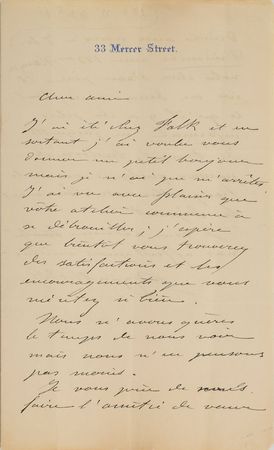 33 Mercer Street.
Cher ami
J'ai été chez Falk et en
sortant j'ai voulu vous
donner un petit bonjour
mais je n'ai que m'arrêter
J'ai vu avec plaisir que
votre atelier commence à
se débrouiller; j'espère
que bientôt vous trouverez
des satisfactions et les
encouragements que vous
méritez si bien.
Nous n'avons guères
le temps de nous voir
mais nous n'en pensons
pas moins.
Je vous prie de
faire l'amitié de venir